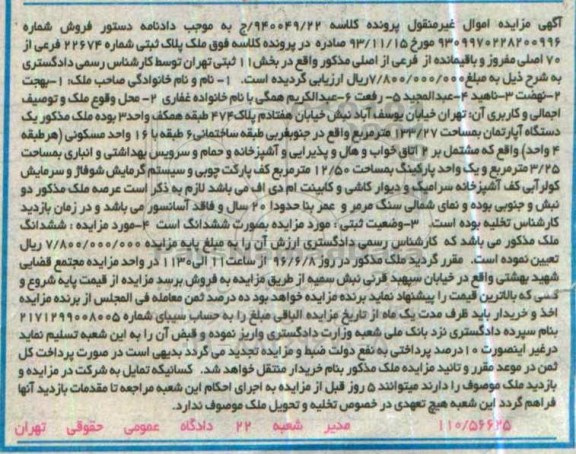 آگهی مزایده اموال غیرمنقول پرونده کلاسه ۹۴۰۰۴۹/۲۲/ج به موجب دادنامه دستور فروش شماره
۹۳۰۹۹۷۰۲۲۸۲۰۰۹۹۶ مورخ ۹۳/۱۱/۱۵ صادره در پرونده کلاسه فوق ملک پلاک ثبتی شماره ۲۲۶۷۴ فرعی از
۷۰ اصلی مفروز و باقیمانده از فرعی از اصلی مذکور واقع در بخش۱۱ ثبتی تهران توسط کارشناس رسمی دادگستری
به شرح ذیل به مبلغ۷/۸۰۰/۰۰۰/۰۰۰ریال ارزیابی گردیده است. ۱- نام و نام خانوادگی صاحب ملک: ۱-بهجت
۲-نهضت ۳-ناهید ۴-عبدالمجید ۵- رفعت ۶-عبدالکریم همگی با نام خانواده غفاری ۲- محل وقوع ملک و توصیف
اجمالی و کاربری آن: تهران خیابان یوسف آباد نبش خیابان هفتادم پلاک۴۷۴ طبقه همکف واحد۳ بوده ملک مذکور یک
دستگاه آپارتمان بمساحت ۱۳۳/۲۷ مترمربع واقع در جنوبغربی طبقه ساختمانی۶ طبقه با ۱۶ واحد مسکونی (هرطبقه
۴ واحد) واقع که مشتمل بر ۲ اتاق خواب و هال و پذیرایی و آشپزخانه و حمام و سرویس بهداشتی و انباری بمساحت
۳/۲۵ مترمربع و یک واحد پارکینگ بمساحت ۱۲/۵۰ مترمربع کف پارکت چوبی و سیستم گرمایش شوفاژ و سرمایش
کولرآبی کف آشپزخانه سرامیک و دیوار کاشی و کابینت ام دی اف می باشد لازم به ذکر است عرصه ملک مذکور دو
نبش و جنوبی بوده و نمای شمالی سنگ مرمر و عمر بنا حدودا ۲۰ سال و فاقد آسانسور می باشد و در زمان بازدید
کارشناس تخلیه بوده است. ۳-وضعیت ثبتی : مورد مزایده بصورت ششدانگ است ۴-مورد مزایده : ششدانگ
ملک مذکور می باشد که کارشناس رسمی دادگستری ارزش آن را به مبلغ پایه مزایده ۷/۸۰۰/۰۰۰/۰۰۰ ریال
تعیین نموده است. مقرر گردید ملک مذکور در روز ۹۶/۶/۸ از ساعت۱۱ الی۱۱۳۰ در واحد مزایده مجتمع قضایی
شهید بهشتی واقع در خیابان سپهبد قرنی نبش سمیه از طریق مزایده به فروش برسد مزایده از قیمت پایه شروع و
کسی که بالاترین قیمت را پیشنهاد نماید برنده مزایده خواهد بود ده درصد ثمن معامله فی المجلس از برنده مزایده
اخذ و خریدار باید ظرف مدت یک ماه از تاریخ مزایده الباقی مبلغ را به حساب سیبای شماره ۲۱۷۱۲۹۹۰۰۸۰۰۵
بنام سپرده دادگستری نزد بانک ملی شعبه وزارت دادگستری واریز نموده و قبض آن را به این شعبه تسلیم نماید
درغیر اینصورت ۱۰درصد پرداختی به نفع دولت ضبط و مزایده تجدید می گردد بدیهی است در صورت پرداخت کل
ثمن در موعد مقرر و تائید مزایده ملک مذکور بنام خریدار منتقل خواهد شد. کسانیکه تمایل به شرکت در مزایده و
بازدید ملک موصوف را دارند میتوانند ۵ روز قبل از مزایده به اجرای احکام این شعبه مراجعه تا مقدمات بازدید آنها
فراهم گردد این شعبه هیچ تعهدی در خصوص تخلیه و تحویل ملک موصوف ندارد.
۱۱۰/۵۶۶۲۵ مدیر شعبه ۲۲ دادگاه عمومی حقوقی تهران